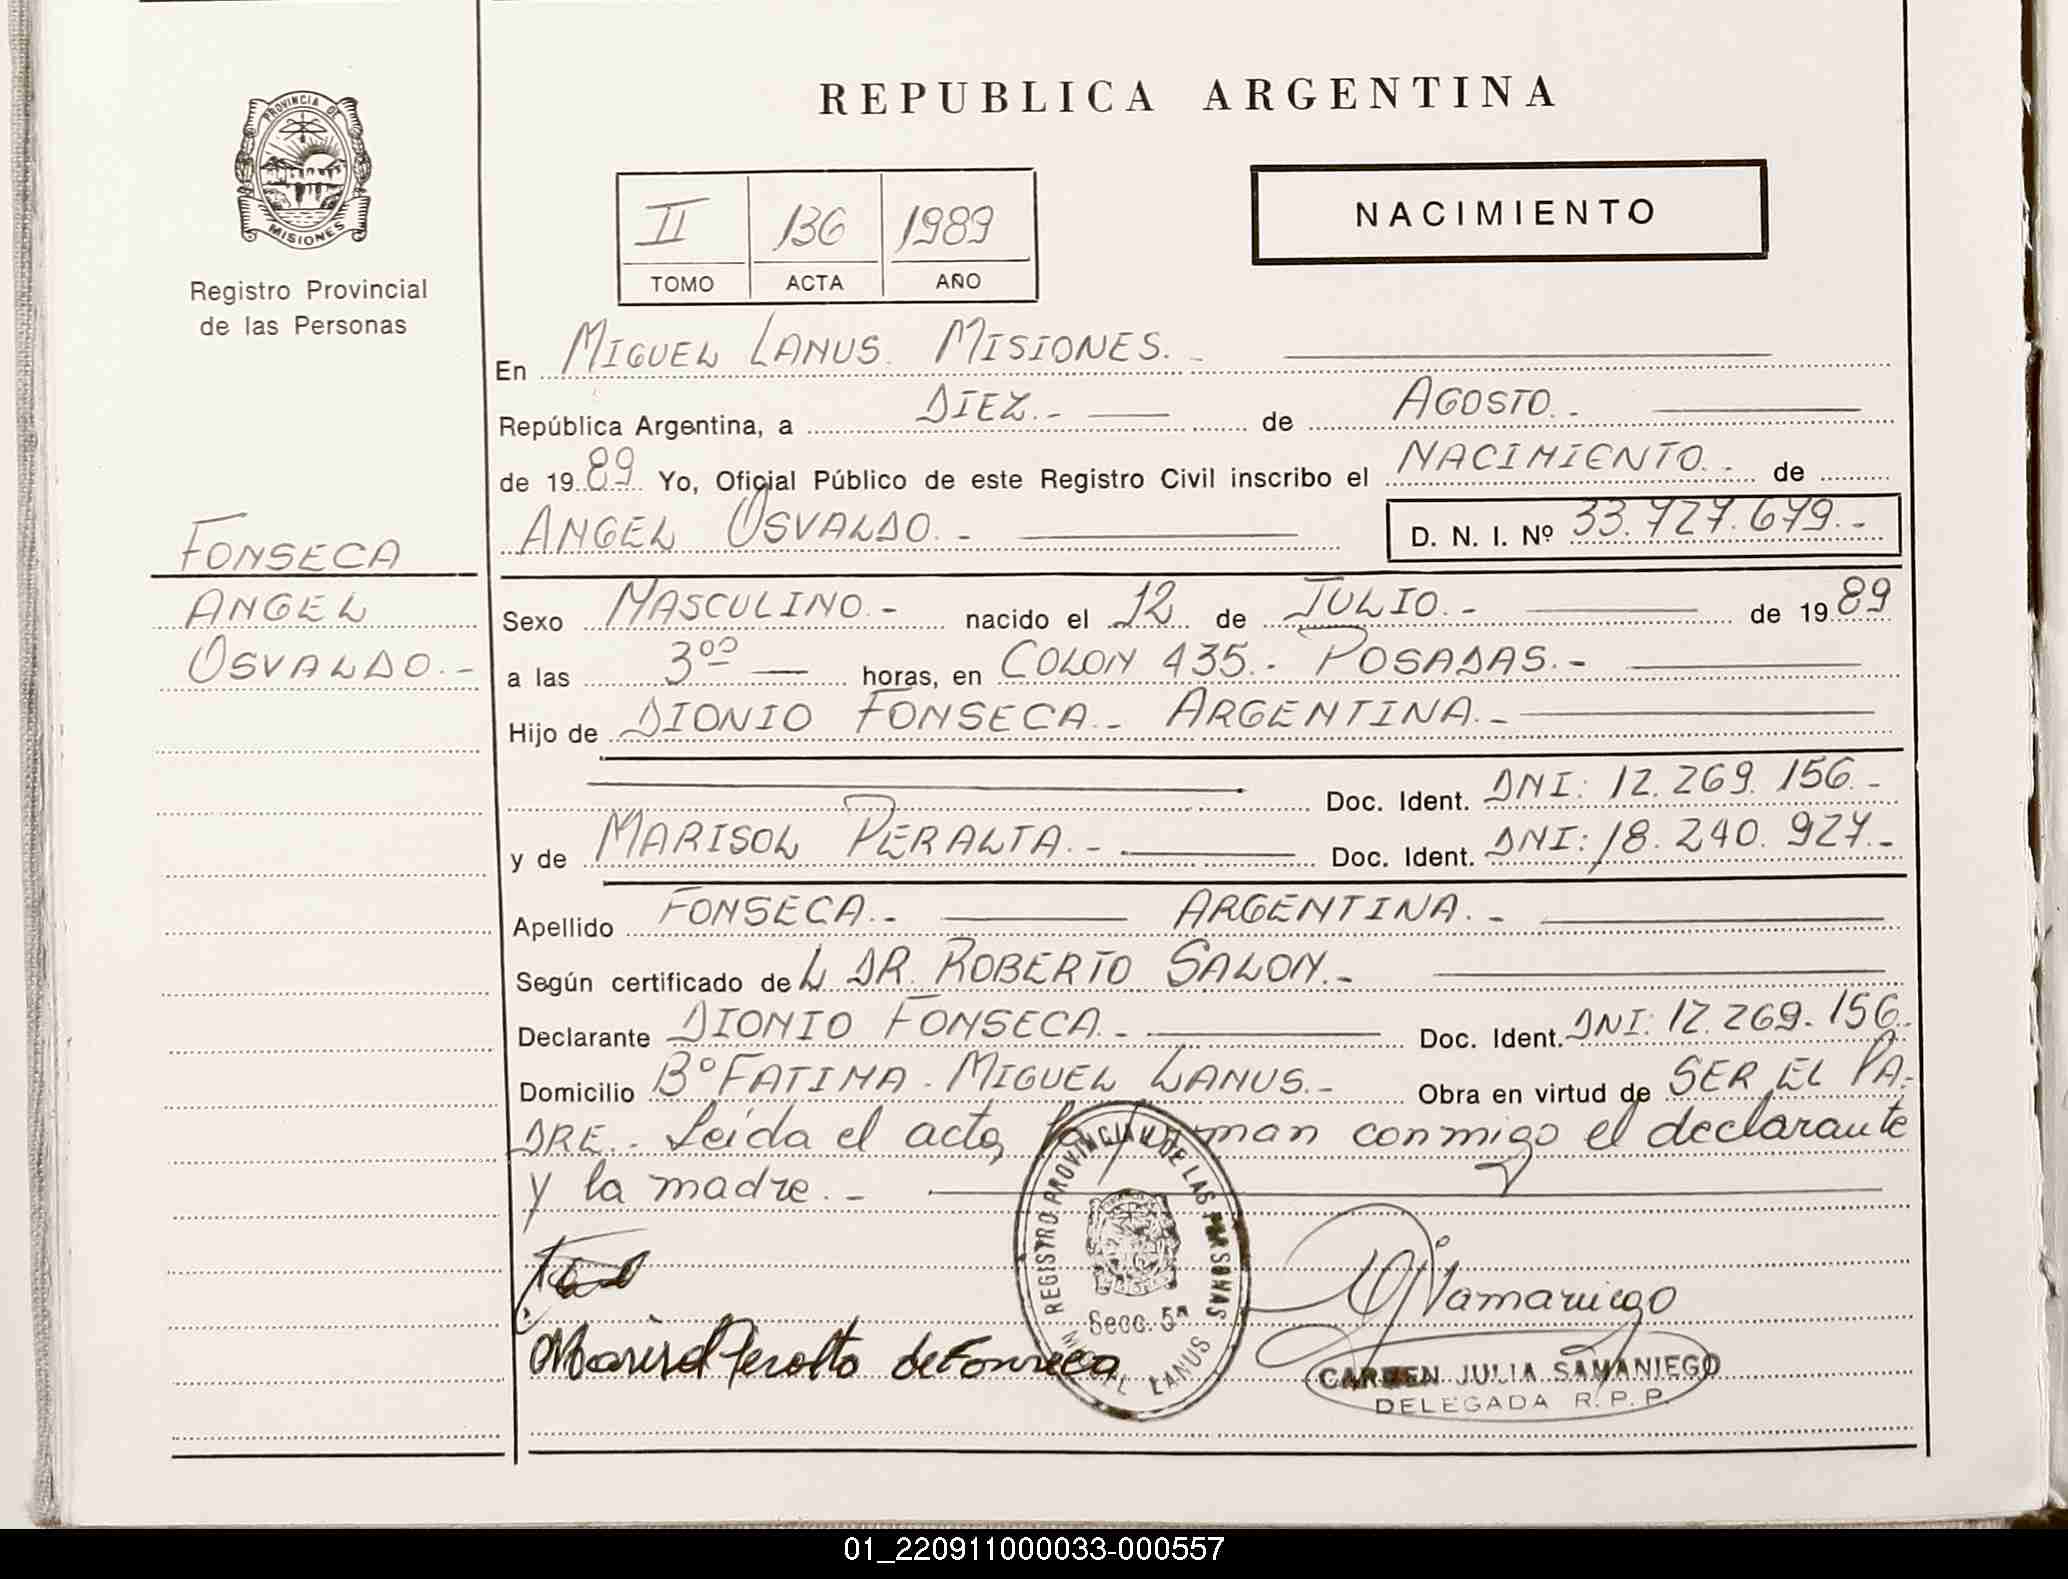 REPUBLICA ARGENTINA
PROVINCIA DE
MISIONES
Registro Provincial
de las Personas
II 136 1989
TOMO ACTA AÑO
NACIMIENTO
En MIGUEL LANUS. MISIONES.-
República Argentina, a DIEZ.- de AGOSTO.-
de 1989 Yo, Oficial Público de este Registro Civil inscribo el NACIMIENTO.- de
ANGEL OSVALDO.- D. N. I. Nº 33.727.679.-
FONSECA
ANGEL
OSVALDO.-
Sexo MASCULINO.- nacido el 12 de JULIO.- de 1989
a las 3ºº horas, en COLON 435.- POSADAS.-
Hijo de DIONIO FONSECA.- ARGENTINA.-
Doc. Ident. DNI: 12.269.156.-
y de MARISOL PERALTA.- Doc. Ident. DNI: 18.240.927.-
Apellido FONSECA.- ARGENTINA.-
Según certificado de L DR. ROBERTO SALON.-
Declarante DIONIO FONSECA.- Doc. Ident. DNI: 12.269.156.
Domicilio Bº FATIMA. MIGUEL LANUS.- Obra en virtud de SER EL PA-
DRE.- Leída el acta, la firman conmigo el declarante
y la madre.-
REGISTRO PROVINCIAL DE LAS PERSONAS
Secc. 5ª
MIGUEL LANUS
Marisol Peralta de Fonseca
CARMEN JULIA SAMANIEGO
DELEGADA R. P. P.
01_220911000033-000557